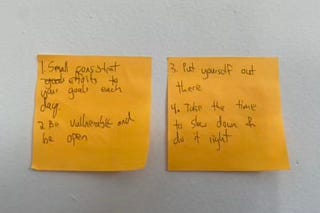 1. Small consistent
good efforts to
your goals each
day.
2. Be vulnerable and
be open
3. Put yourself out
there
4. Take the time
to slow down &
do it right